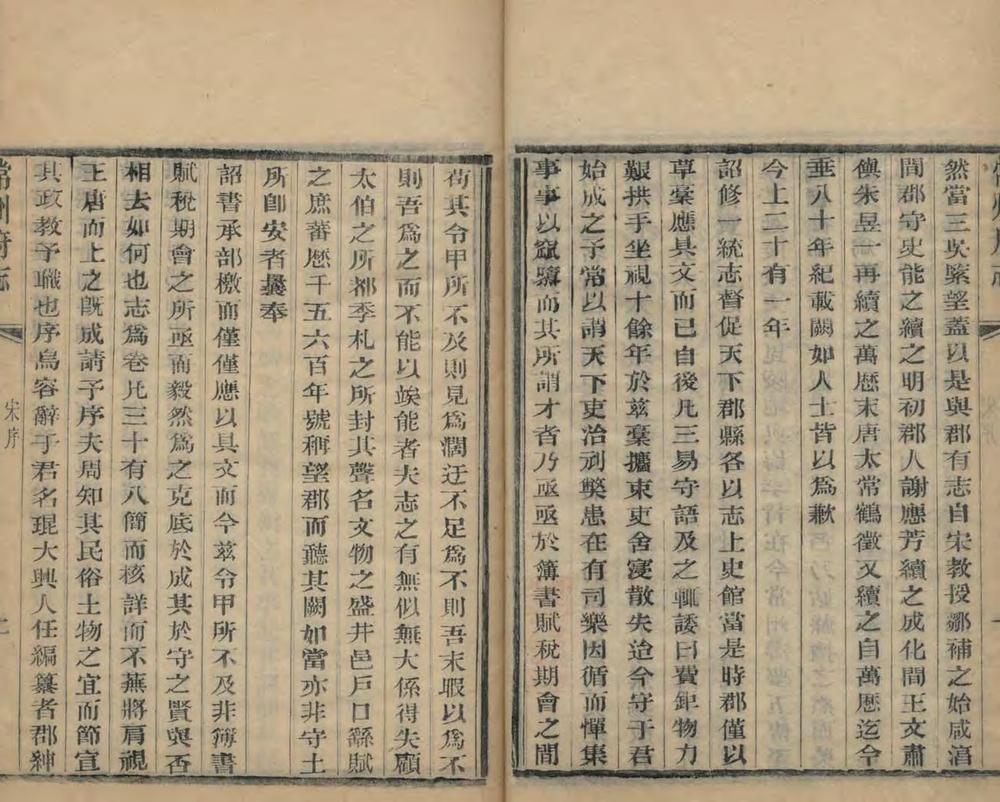 然當三吳繁望蓋以是與郡有志自宋教授鄒補之始咸淳
間郡守史能之續之明初郡人謝應芳續之成化間王文肅
㒟朱昱一再續之萬厯末唐太常鶴徵又續之自萬厯迄今
垂八十年紀載闕如人士皆以為歉
今上二十有一年
詔修一統志督促天下郡縣各以志上史館當是時郡僅以
草稾應具文而已自後凡三易守語及之輒諉曰費鉅物力
艱拱手坐視十餘年於兹稾攟束吏舍寖散失迨今守于君
始成之予常以謂天下吏治刓獘患在有司樂因循而憚集
事事以窳隳而其所謂才者乃亟亟於簿書賦稅期會之間
苟其令甲所不及則見為濶迂不足為不則吾未暇以為不
則吾為之而不能以竢能者夫志之有無似無大係得失顧
太伯之所都季札之所封其聲名文物之盛井邑戶口繇賦
之庶蕃厯千五六百年號稱望郡而聽其闕如當亦非守土
所卽安者曩奉
詔書承部檄而僅僅應以具文而今兹令甲所不及非簿書
賦稅期會之所亟而毅然為之克底於成其於守之賢與否
相去如何也志為卷凡三十有八簡而核詳而不蕪將肩視
王唐而上之旣成請予序夫周知其民俗土物之宜而節宣
其政教予職也序烏容辭于君名琨大興人任編纂者郡紳
常州府志
宋序